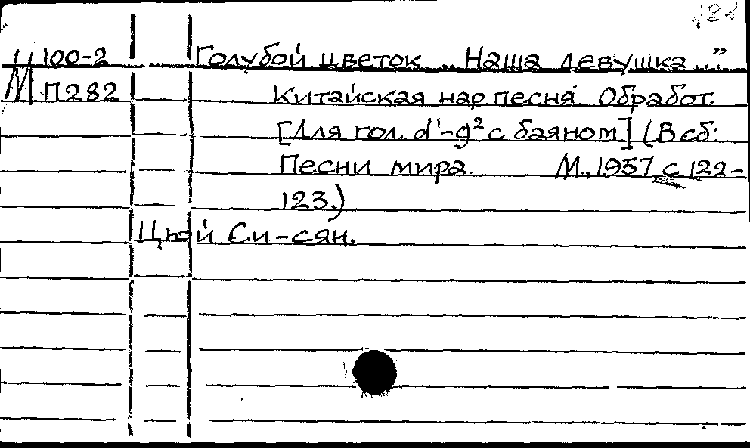 М 100-2 Голубой цветок „Наша девушка..."
П282 Китайская нар песня. Обработ.
[Для гол. d'-g² с баяном] (В сб:
Песни мира. М., 1957, с 122-
123.)
Цюй Си-сян.